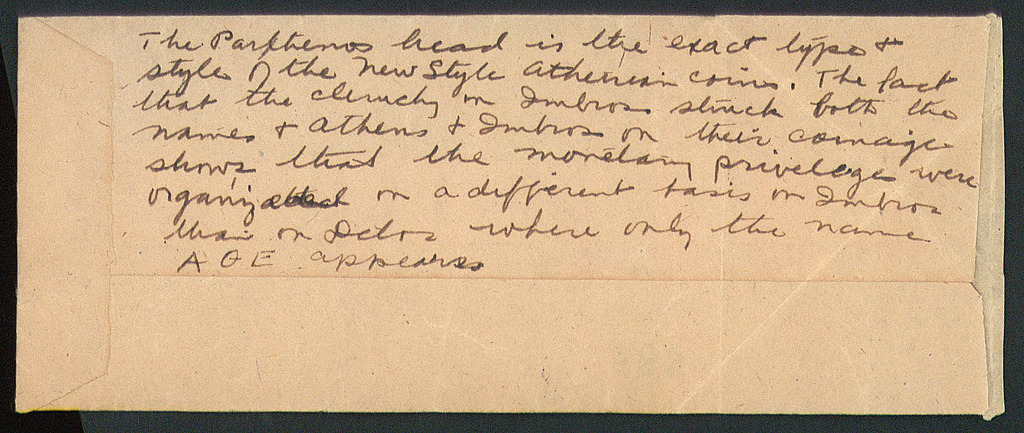 The Parthenos head is the exact type &
style of the New Style Athenian coins. The fact
that the cleruchy on Imbros struck both the
names & Athens & Imbros on their coinage
shows that the monetary privelege were
organized on a different basis on Imbros
than on Delos where only the name
ΑΘΕ appears